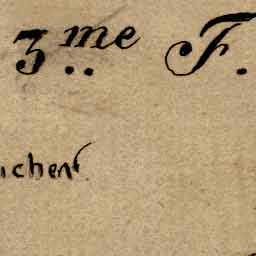 3.me F.
ichen